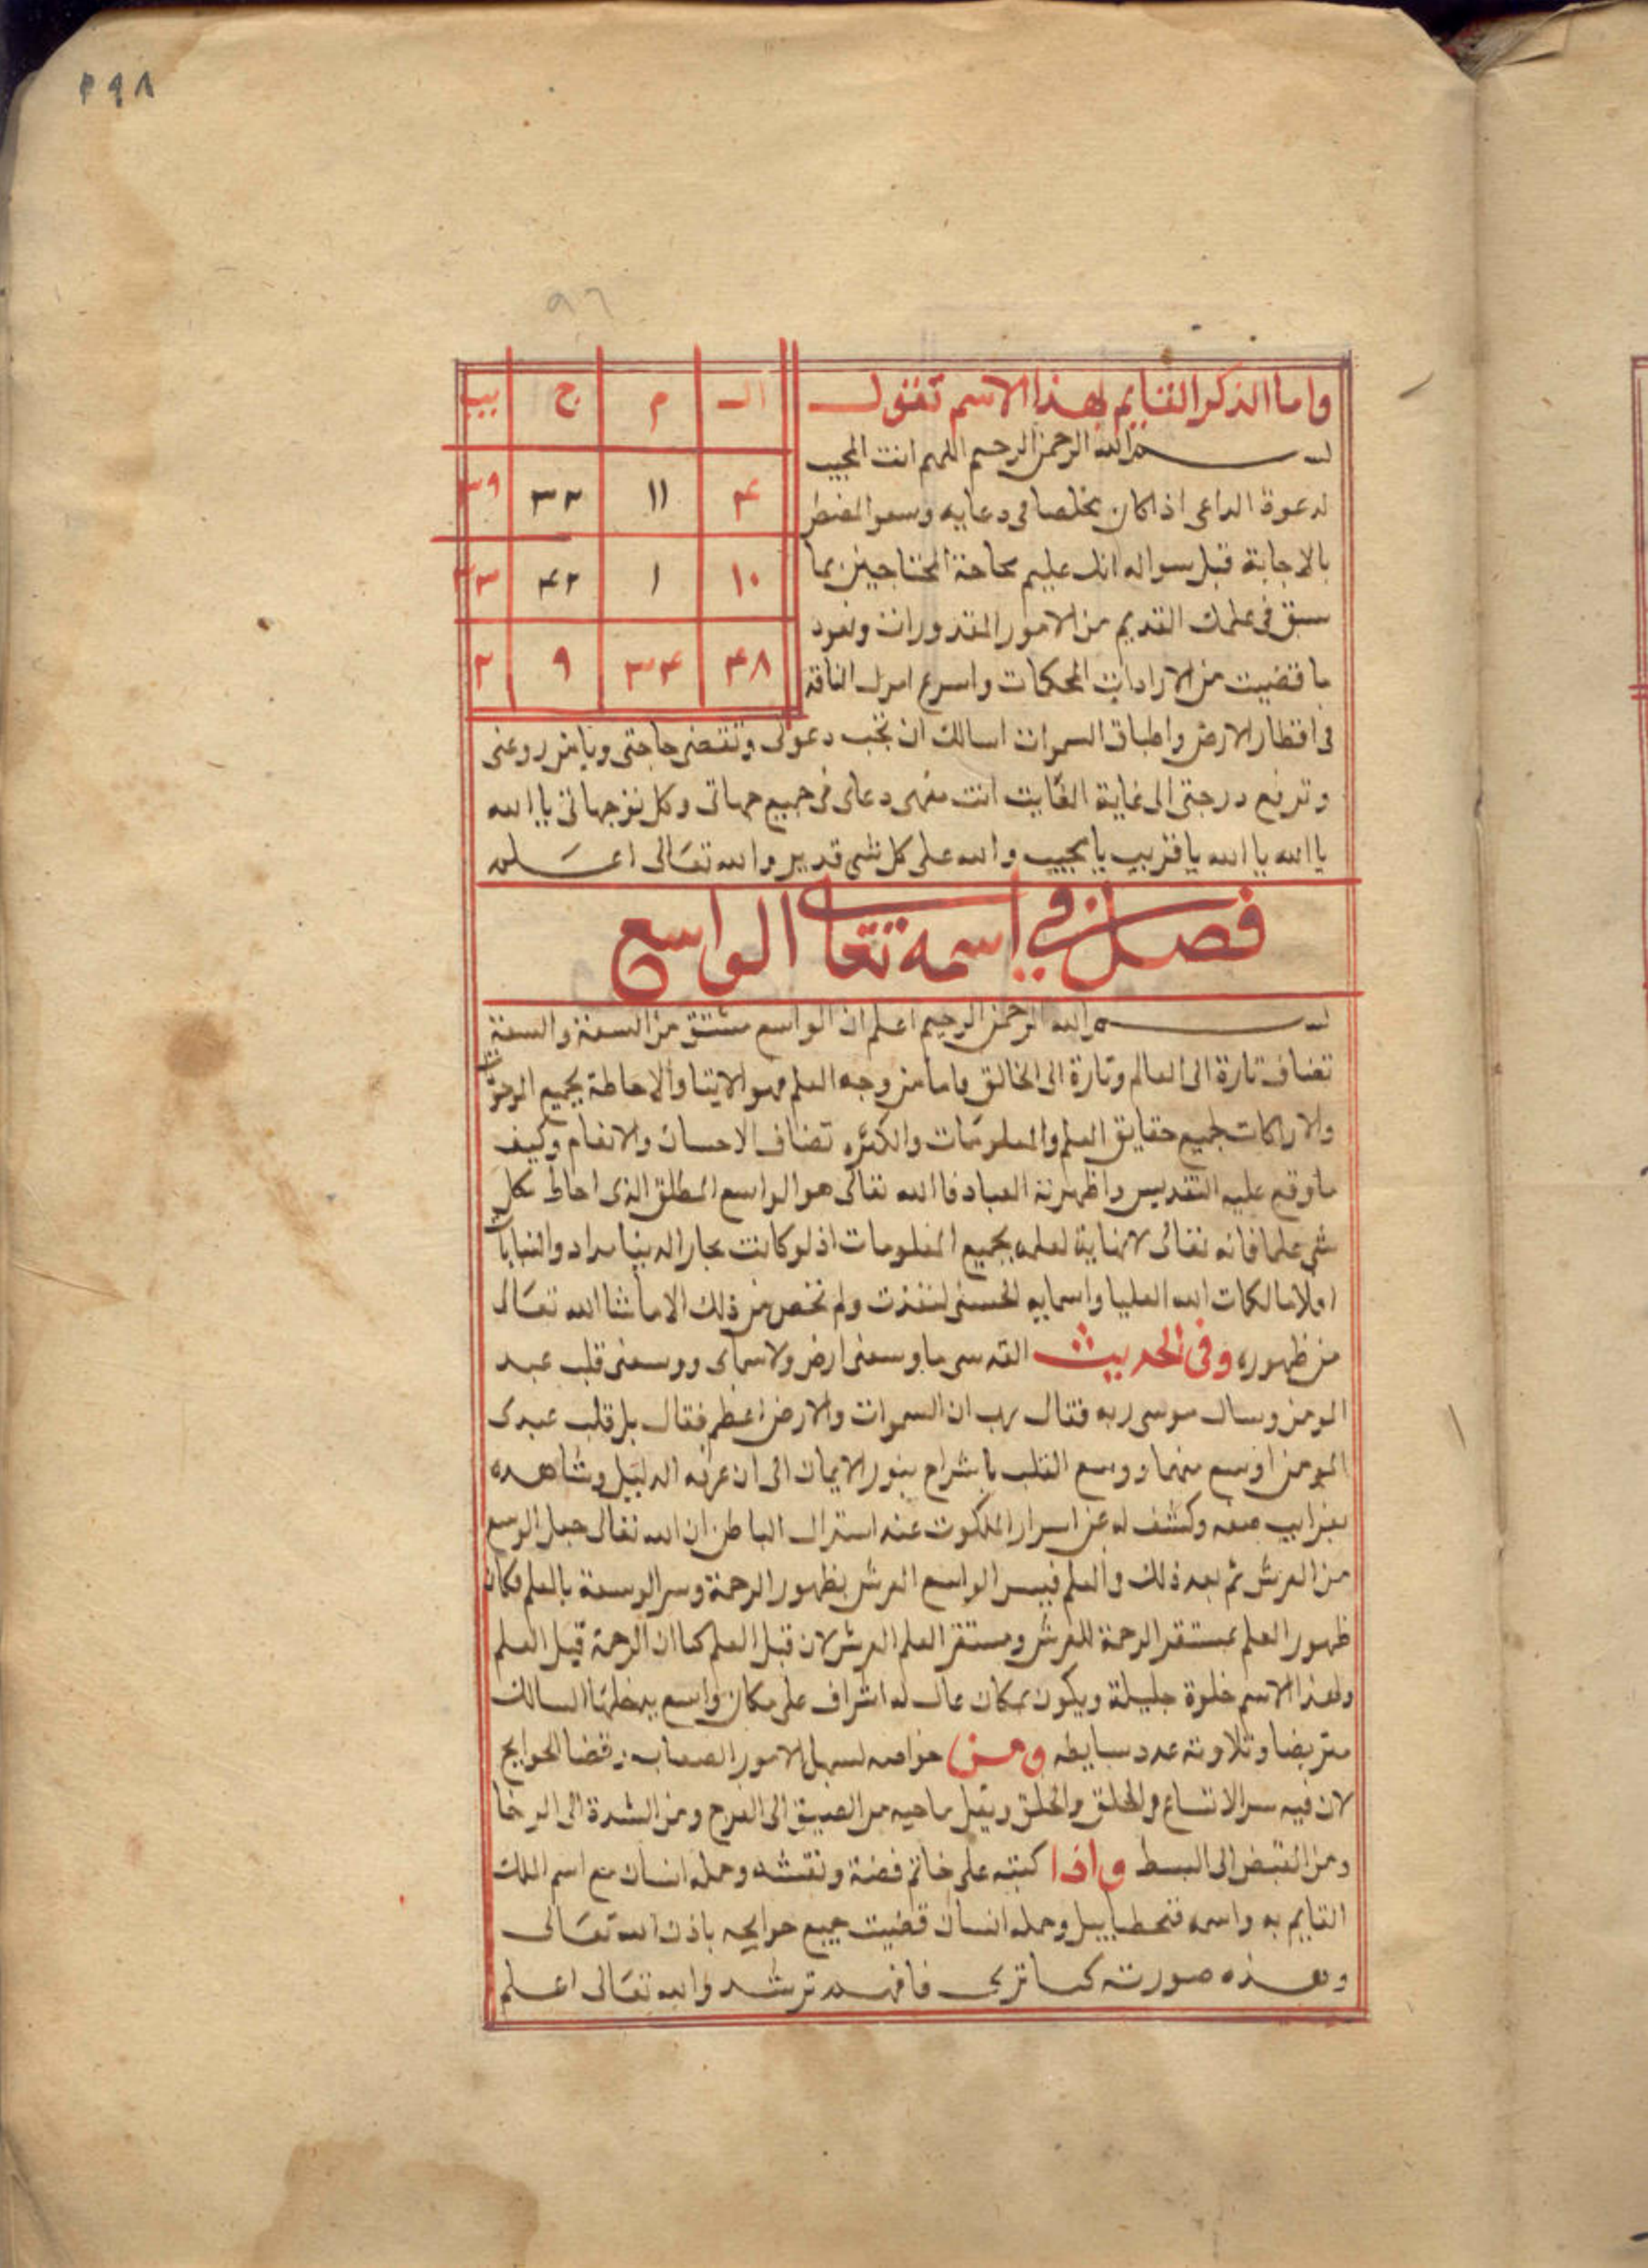 ٢٩٨
٩٦
واما الذكر القايم بهذا الاسم تقول
بسم الله الرحمن الرحيم اللهم انت المجيب
لدعوة الداعى اذا كان مخلصا فى دعايه وسعو المضطر
بالاجابة قبل سواله انك عليم بحاجة المحتاجين بما
سبق فى علمك القديم من الامور المقدورات ونعود
ما قضيت من الارادات المحكمات واسرع امرك النافذ
ال م ج يب
٤ ١١ ٣٢ ٣٩
١٠ ١ ٤٢
٤٨ ٣٤ ٩ ٢
فى اقطار الارض واطباق السموات اسالك ان تجب دعوتى وتقضى حاجتى وتامن روعتى
وترفع درجتى الى غاية الغايت انت دعاى فى جميع جهاتى وكل توجهاتى يا الله
يا الله يا الله يا قريب يا مجيب والله على كل شى قدير والله تعالى اعلم
فصل فى اسمه تعالى الواسع
بسم الله الرحمن الرحيم اعلم ان الواسع مشتق من السعة والسعة
تضاف تارة الى العالم وتارة الى الخالق واما من وجه العلم فهو والاحاطة بجميع
لجميع حقايق العلم والمعلومات والكثره تضاف الاحسان والانعام وكيف
ما وقع عليه التقديس العباد فالله تعالى هو الواسع المطلق الذى احاط بكل
شى علما فانه تعالى لانهاية لعلمه بجميع المعلومات اذ لو كانت بحار الدنيا مداد
اقلاما لكلمات الله العليا واسمايه الحسنى لنفذت ولم تخص من ذلك الا ما شا الله تعالى
من ظهوره وفى الحديث القدسى ما وسعنى ارض ولا سماى ووسعنى قلب عبد
المومن وسال موسى ربه فقال يرب ان السموات والارض اعظم فقال بل قلب عبدى
المومن اوسع منهما ووسع القلب بنور الايمان الى ان عرفه الدليل وشاهده
بغرايب صنعه وكشف له عن اسرار الملكوت عنه الباطن ان الله تعالى
من العرش ثم بعد ذلك والعلم فبسر الواسع العرش بظهور الرحمة وسر الوسعة بالعلم فكان
ظهور العلم بمستقر الرحمة للعرش ومستقر العلم العرش لان قبل العلم كما ان الرحمة قبل العلم
ولهذا الاسم خلوة جليلة ويكون بمكان عال له اشراف على مكان واسع يدخلها السالك
وتلاوته عدد بسايطه ومن خواصه لسهيل الامور الصعاب وقضا الحوايج
لان فيه سر الاتساع والخلق والخلق من الضيق الى الفرج ومن الشدة الى الرخا
ومن القبض الى البسط واذا كتبته على خاتم فضة ونقشه وحمله انسان مع اسم الملك
القايم به واسمه وحمله انسان قضيت جميع حوايجه باذن الله تعالى
وهذه صورته كما ترى فافهم ترشد والله تعالى اعلم